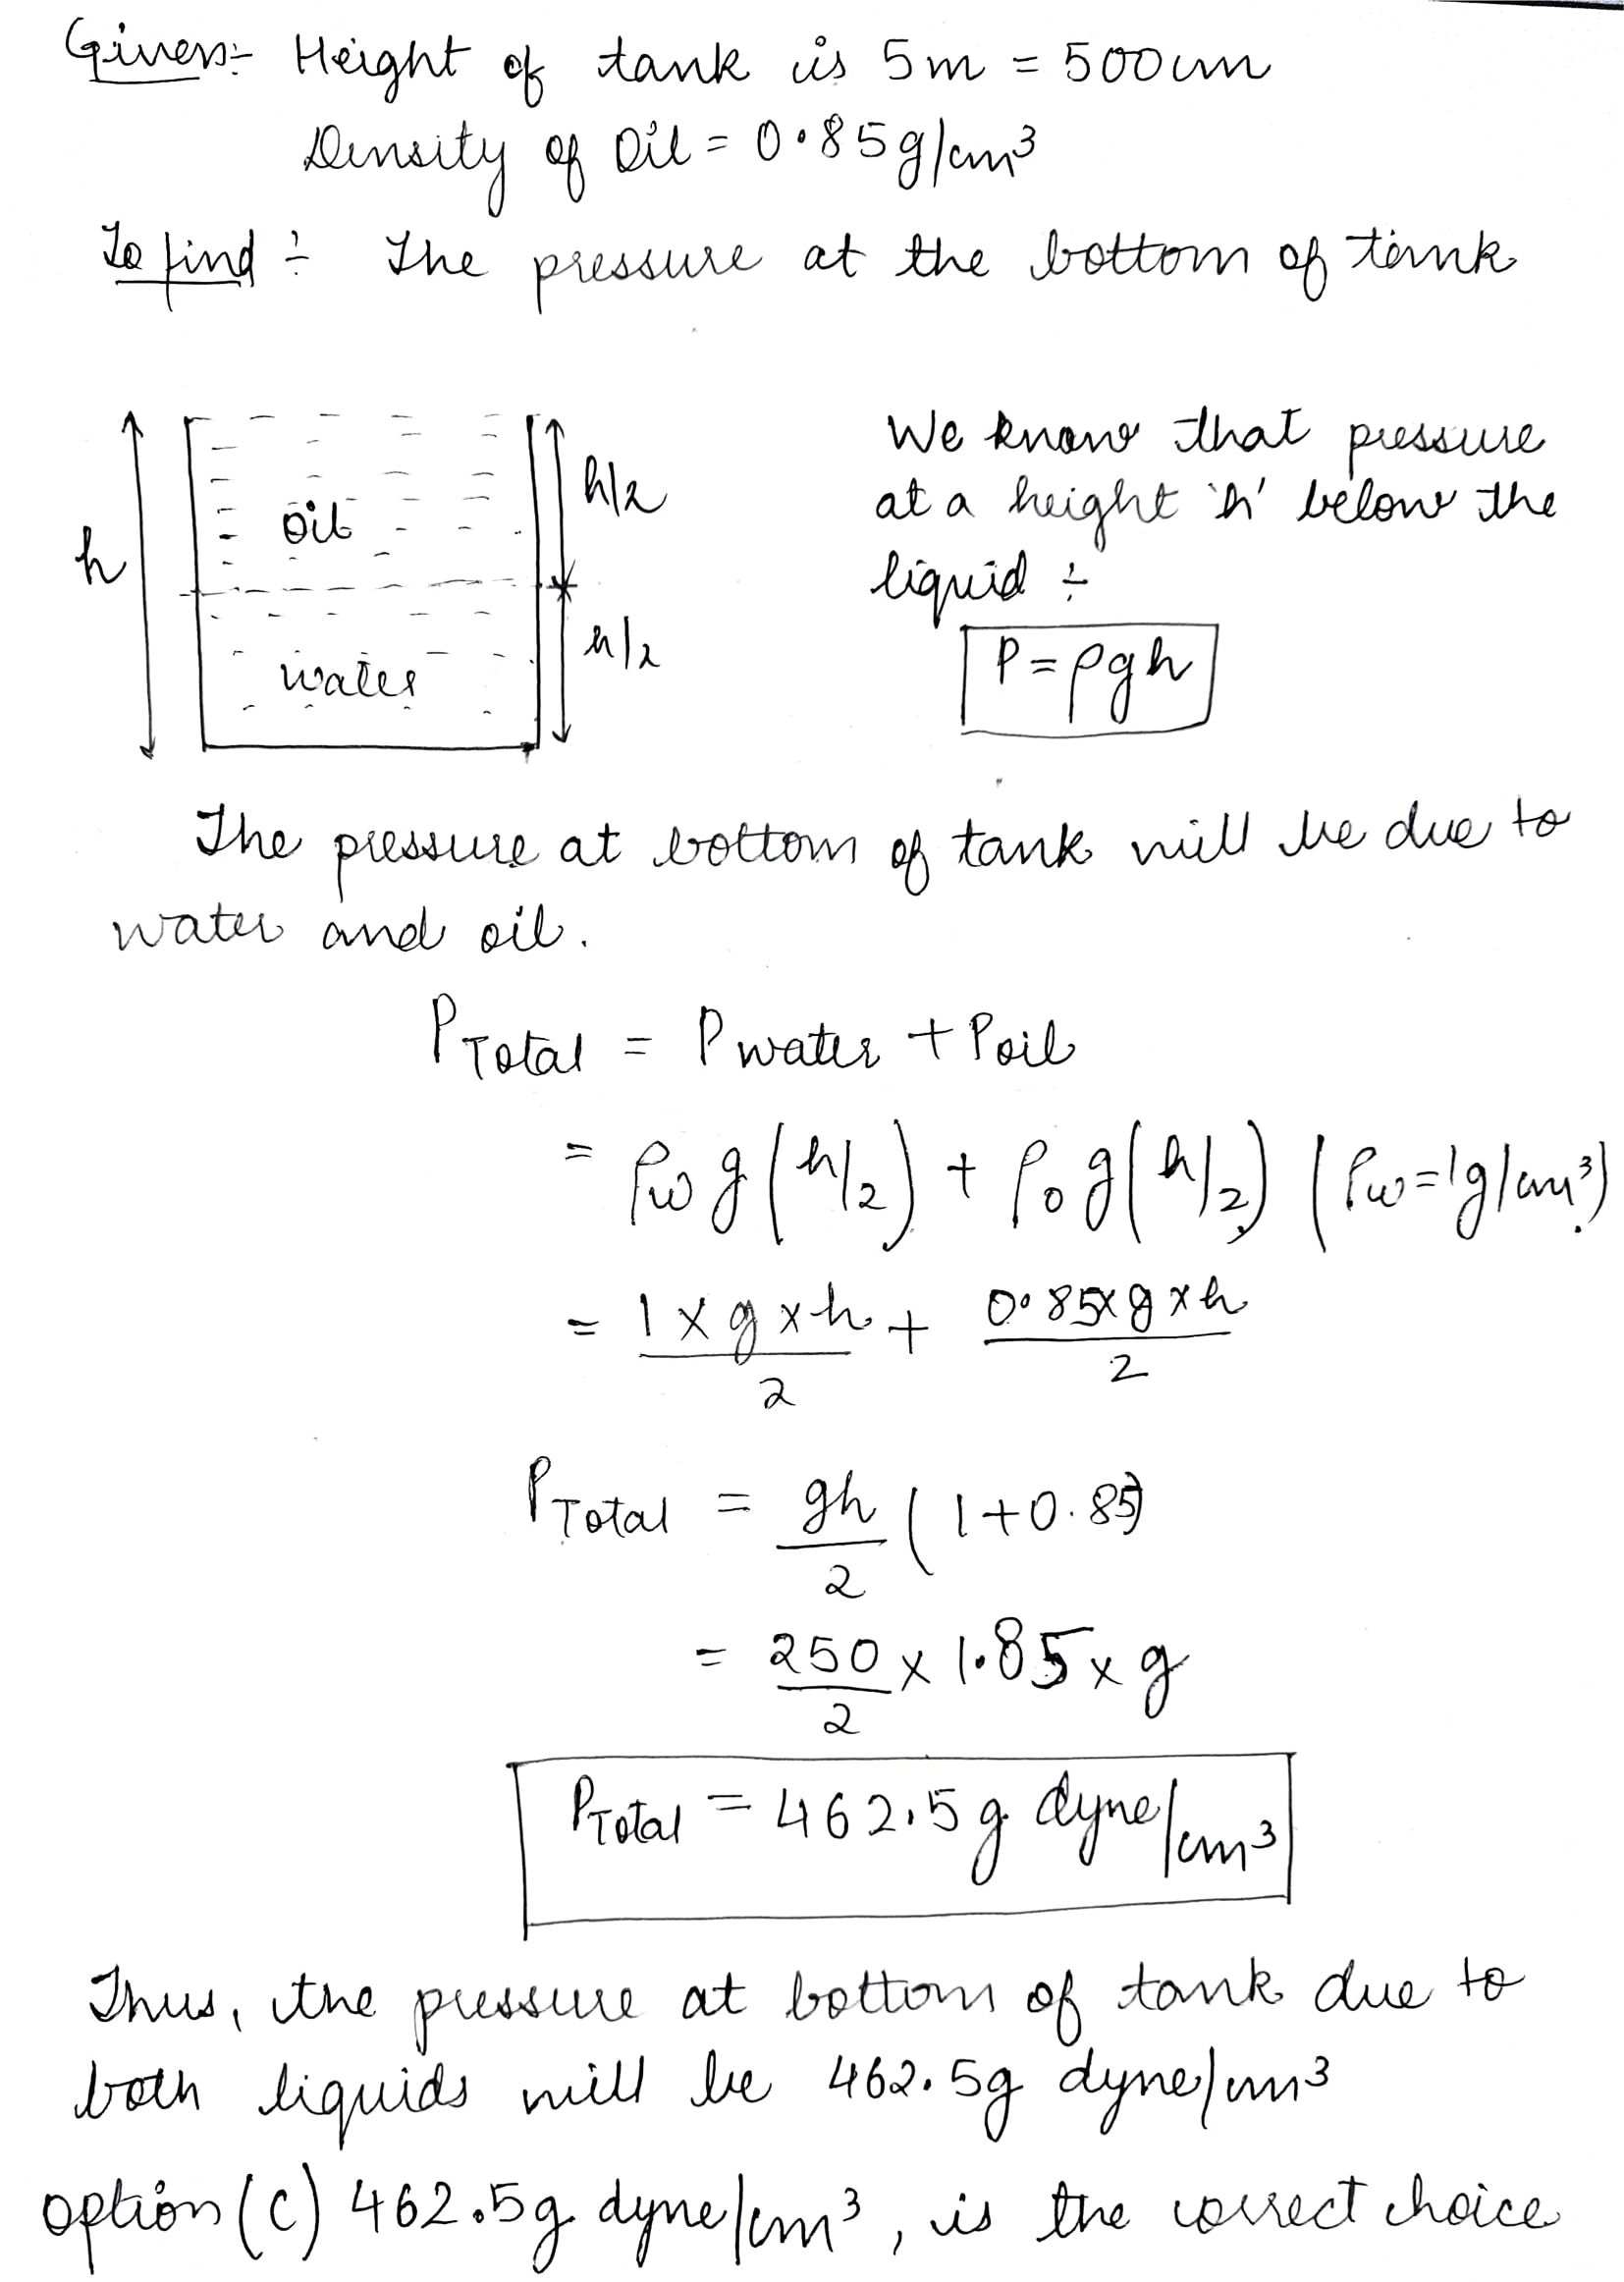 Given:- Height of tank is 5m = 500cm
Density of Oil = 0.85g/cm³
To find ÷ The pressure at the bottom of tank
We know that pressure
at a height 'h' below the
liquid ÷
P = ρgh
h
oil
water
h/2
h/2
The pressure at bottom of tank will be due to
water and oil.
P Total = P water + P oil
= ρw g (h/2) + ρo g (h/2) (ρw = 1g/cm³)
= 1 × g × h / 2 + 0.85 × g × h / 2
P Total = gh/2 (1+0.85)
= 250/2 × 1.85 × g
P Total = 462.5g dyne/cm³
Thus, the pressure at bottom of tank due to
both liquids will be 462.5g dyne/cm³
option (C) 462.5g dyne/cm³, is the correct choice